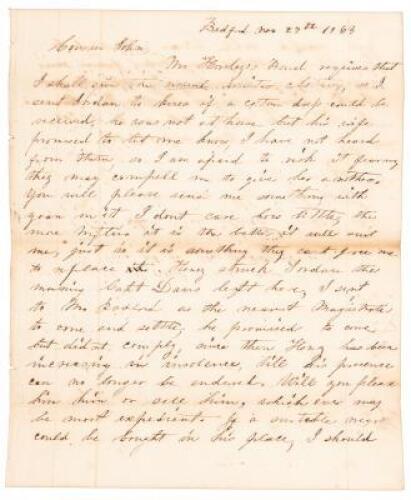 Bedford Nov 27th 1863
Cousin John
Mr Hurley's Bond requires that
I shall give the
sent Jordan to know if a cotton heap could be
received, he was not at home but his wife
promised to let me know, I have not heard
from them, so I am afraid to risk it fearing
they may compell me to give her another.
You will please send me something with
yarn in it I dont care how little, the
more it is the better it will suit
me, just so it is something they cant force me
to replace. Henry struck Jordan the
morning Capt Davis left here, I sent
to Mr as the nearest Magistrate
to come and settle, he promised to come
but didnt comply, since then Henry has been
increasing in insolence, till his presence
can no longer be endured. Will you please
hire him or sell him, which ever may
be most expedient. If a suitable negro
could be bought in his place, I should